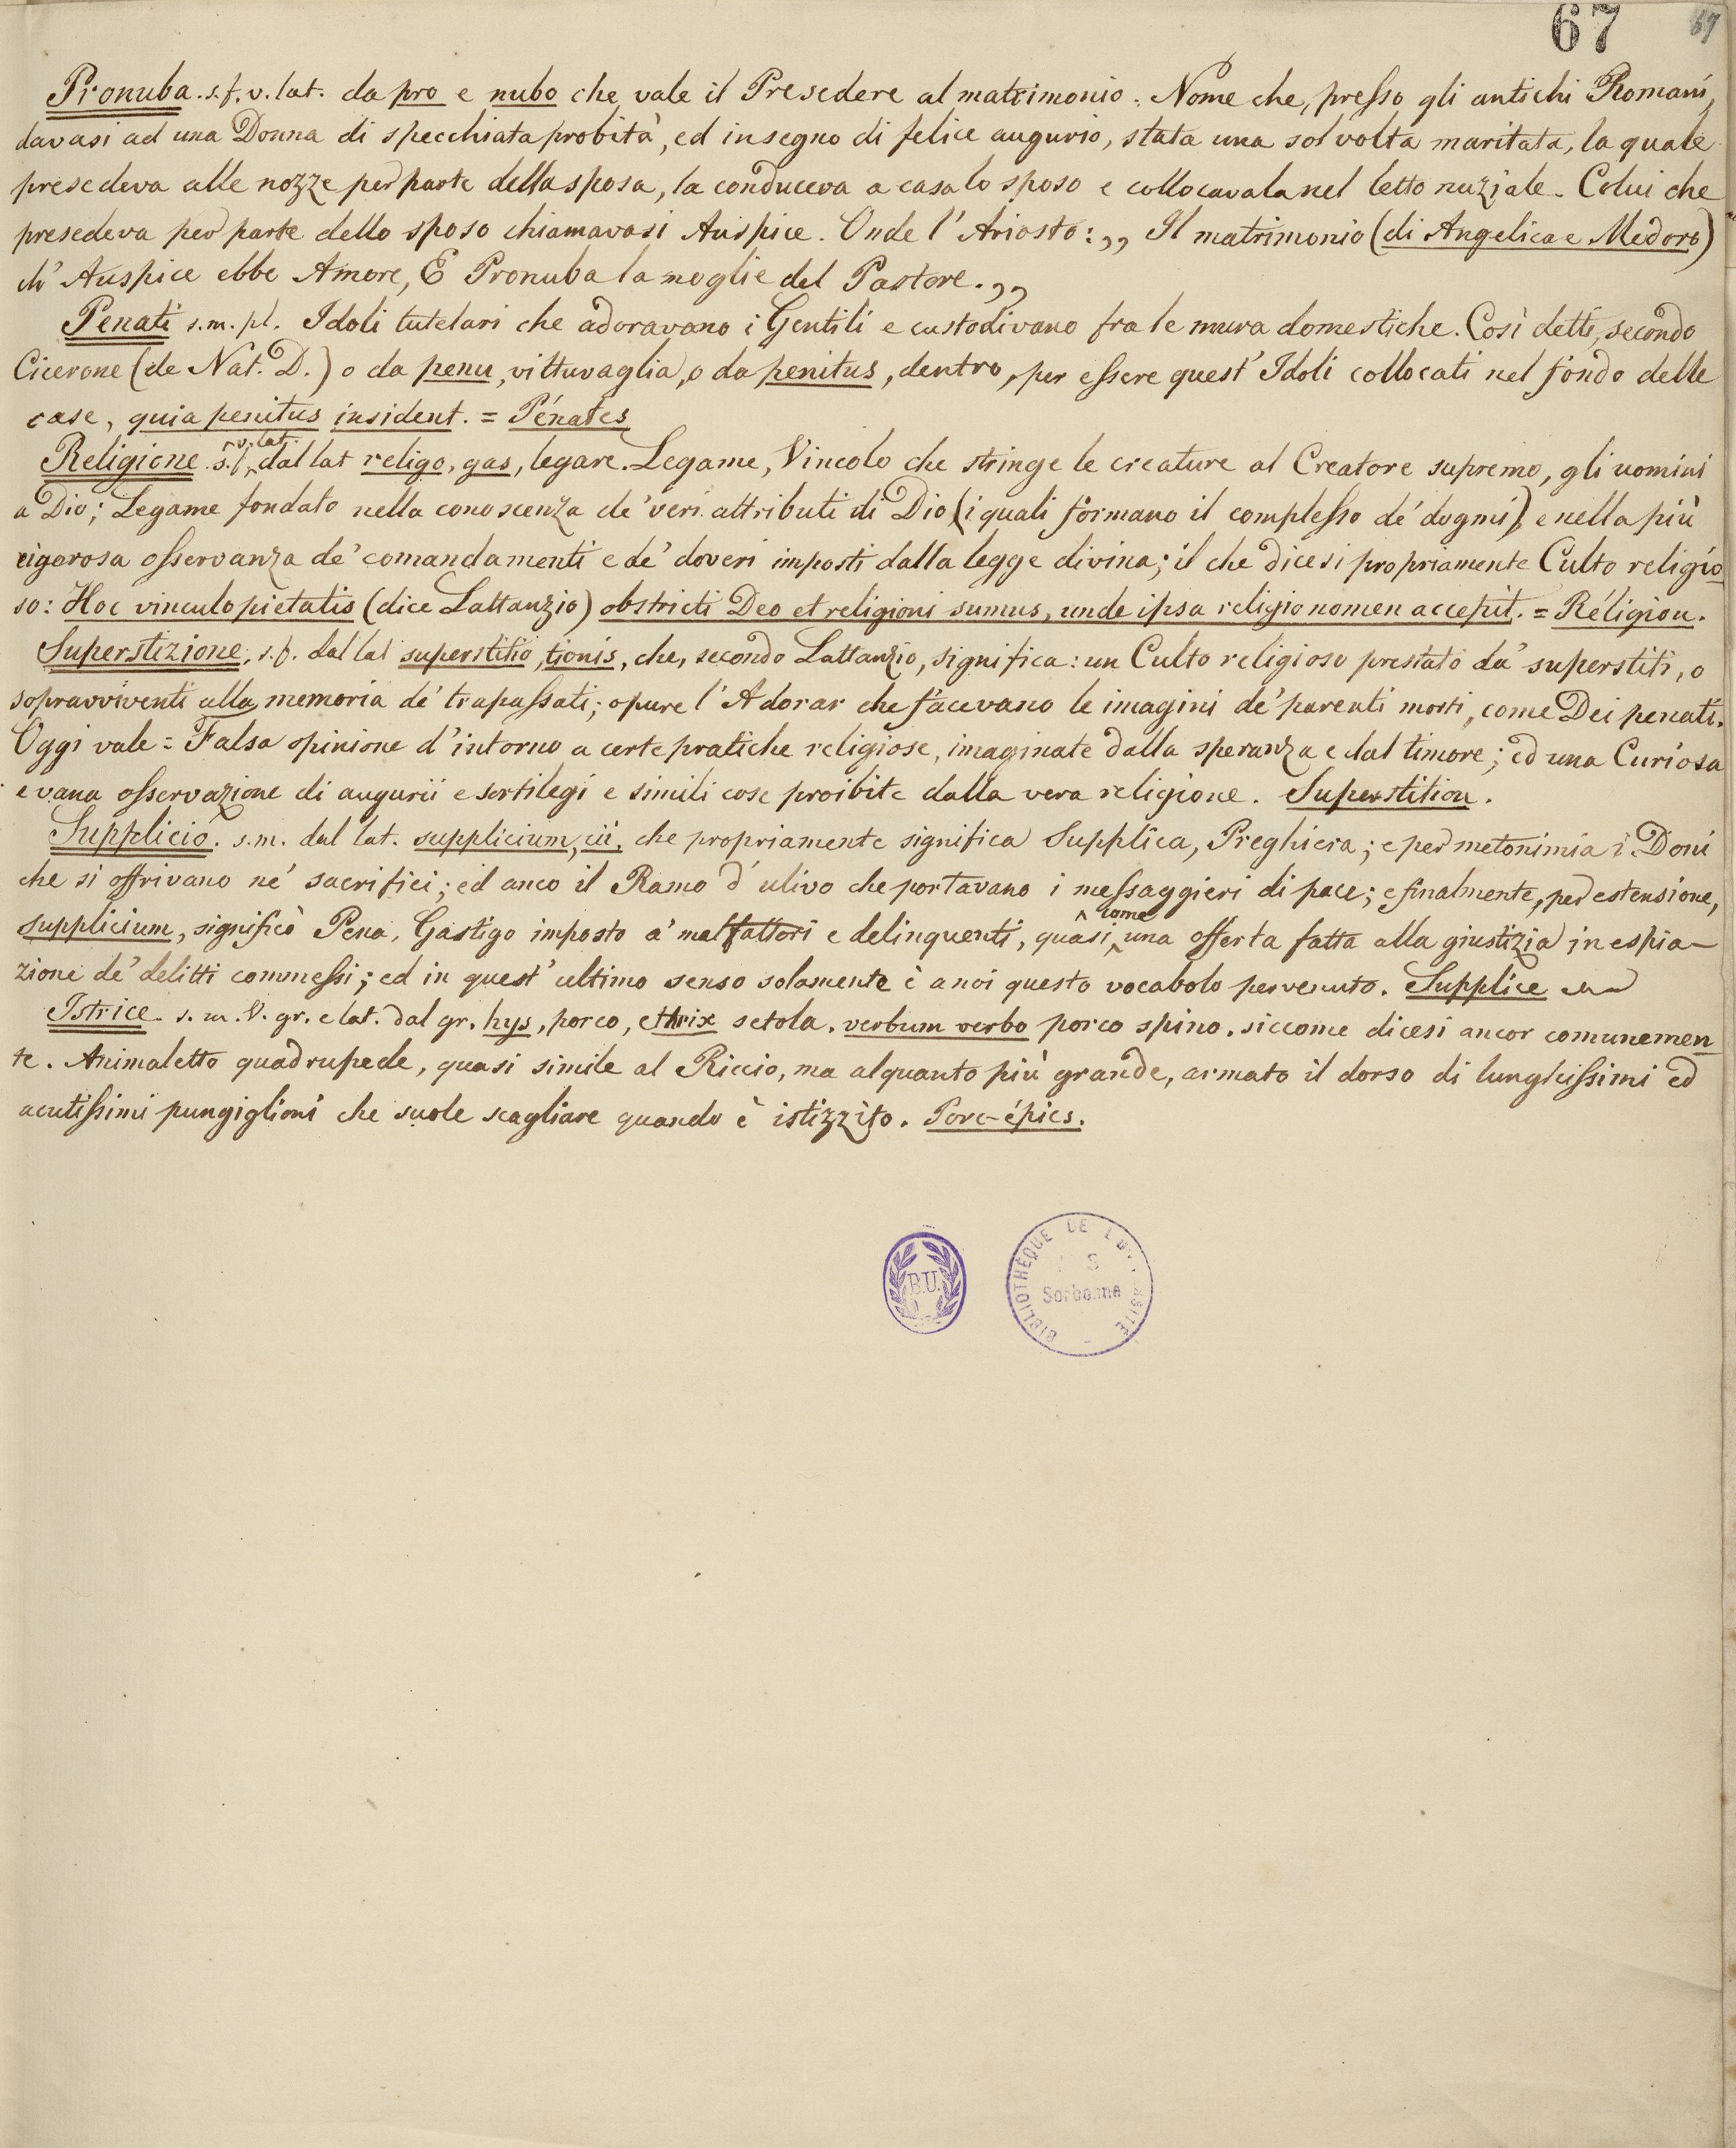 67 67
Pronuba. s.f. v. lat. da pro e nubo che vale il Presedere al matrimonio. Nome che, presso gli antichi Romani,
davasi ad una Donna di specchiata probità, ed in segno di felice augurio, stata una sol volta maritata, la quale
presedeva alle nozze per parte della sposa, la conduceva a casa lo sposo e collocavala nel letto nuziale. Colui che
presedeva per parte dello sposo chiamavasi Auspice. Onde l'Ariosto: ,, Il matrimonio (di Angelica e Medoro)
ch' Auspice ebbe Amore, E Pronuba la moglie del Pastore. ,,
Penati s.m. pl. Idoli tutelari che adoravano i Gentili e custodivano fra le mura domestiche. Così detti, secondo
Cicerone (de Nat. D.) o da penu, vittuvaglia, o da penitus, dentro, per essere quest' Idoli collocati nel fondo delle
case, quia penitus insident. = Pénates
Religione s.f. v. lat. dal lat religo, gas, legare. Legame, Vincolo che stringe le creature al Creatore supremo, gli uomini
a Dio; Legame fondato nella conoscenza de' veri attributi di Dio (i quali formano il complesso de' dogmi), e nella più
rigorosa osservanza de' comandamenti e de' doveri imposti dalla legge divina; il che dicesi propriamente Culto religio
so: Hoc vinculo pietatis (dice Lattanzio) obstricti Deo et religioni sumus, unde ipsa religio nomen accepit. = Réligion.
Superstizione, s.f. dal lat superstitio, tionis, che, secondo Lattanzio, significa: un Culto religioso prestato da' superstiti, o
sopravviventi alla memoria de' trapassati; opure l'Adorar che facevano le imagini de' parenti morti, come Dei penati.
Oggi vale = Falsa opinione d'intorno a certe pratiche religiose, imaginate dalla speranza e dal timore; ed una Curiosa
e vana osservazione di augurii e sortilegi e simili cose proibite dalla vera religione. Superstition.
Supplicio. s.m. dal lat. supplicium, cii, che propriamente significa Supplica, Preghiera; e per metonimia i Doni
che si offrivano ne' sacrifici; ed anco il Ramo d'ulivo che portavano i messaggieri di pace; e finalmente, per estensione,
supplicium, significò Pena, Gastigo imposto a' malfattori e delinquenti, quasi come una offerta fatta alla giustizia in espia-
zione de' delitti commessi; ed in quest' ultimo senso solamente è a noi questo vocabolo pervenuto. Supplice
Istrice. s. m. V. gr. e lat. dal gr. hys, porco, e thrix setola. verbum verbo porco spino. siccome dicesi ancor comunemen
te. Animaletto quadrupede, quasi simile al Riccio, ma alquanto più grande, armato il dorso di lunghissimi ed
acutissimi pungiglioni che suole scagliare quando è istizzito. Porc-épics.
B.U.
BIBLIOTHÈQUE DE L'U
Sorbonne